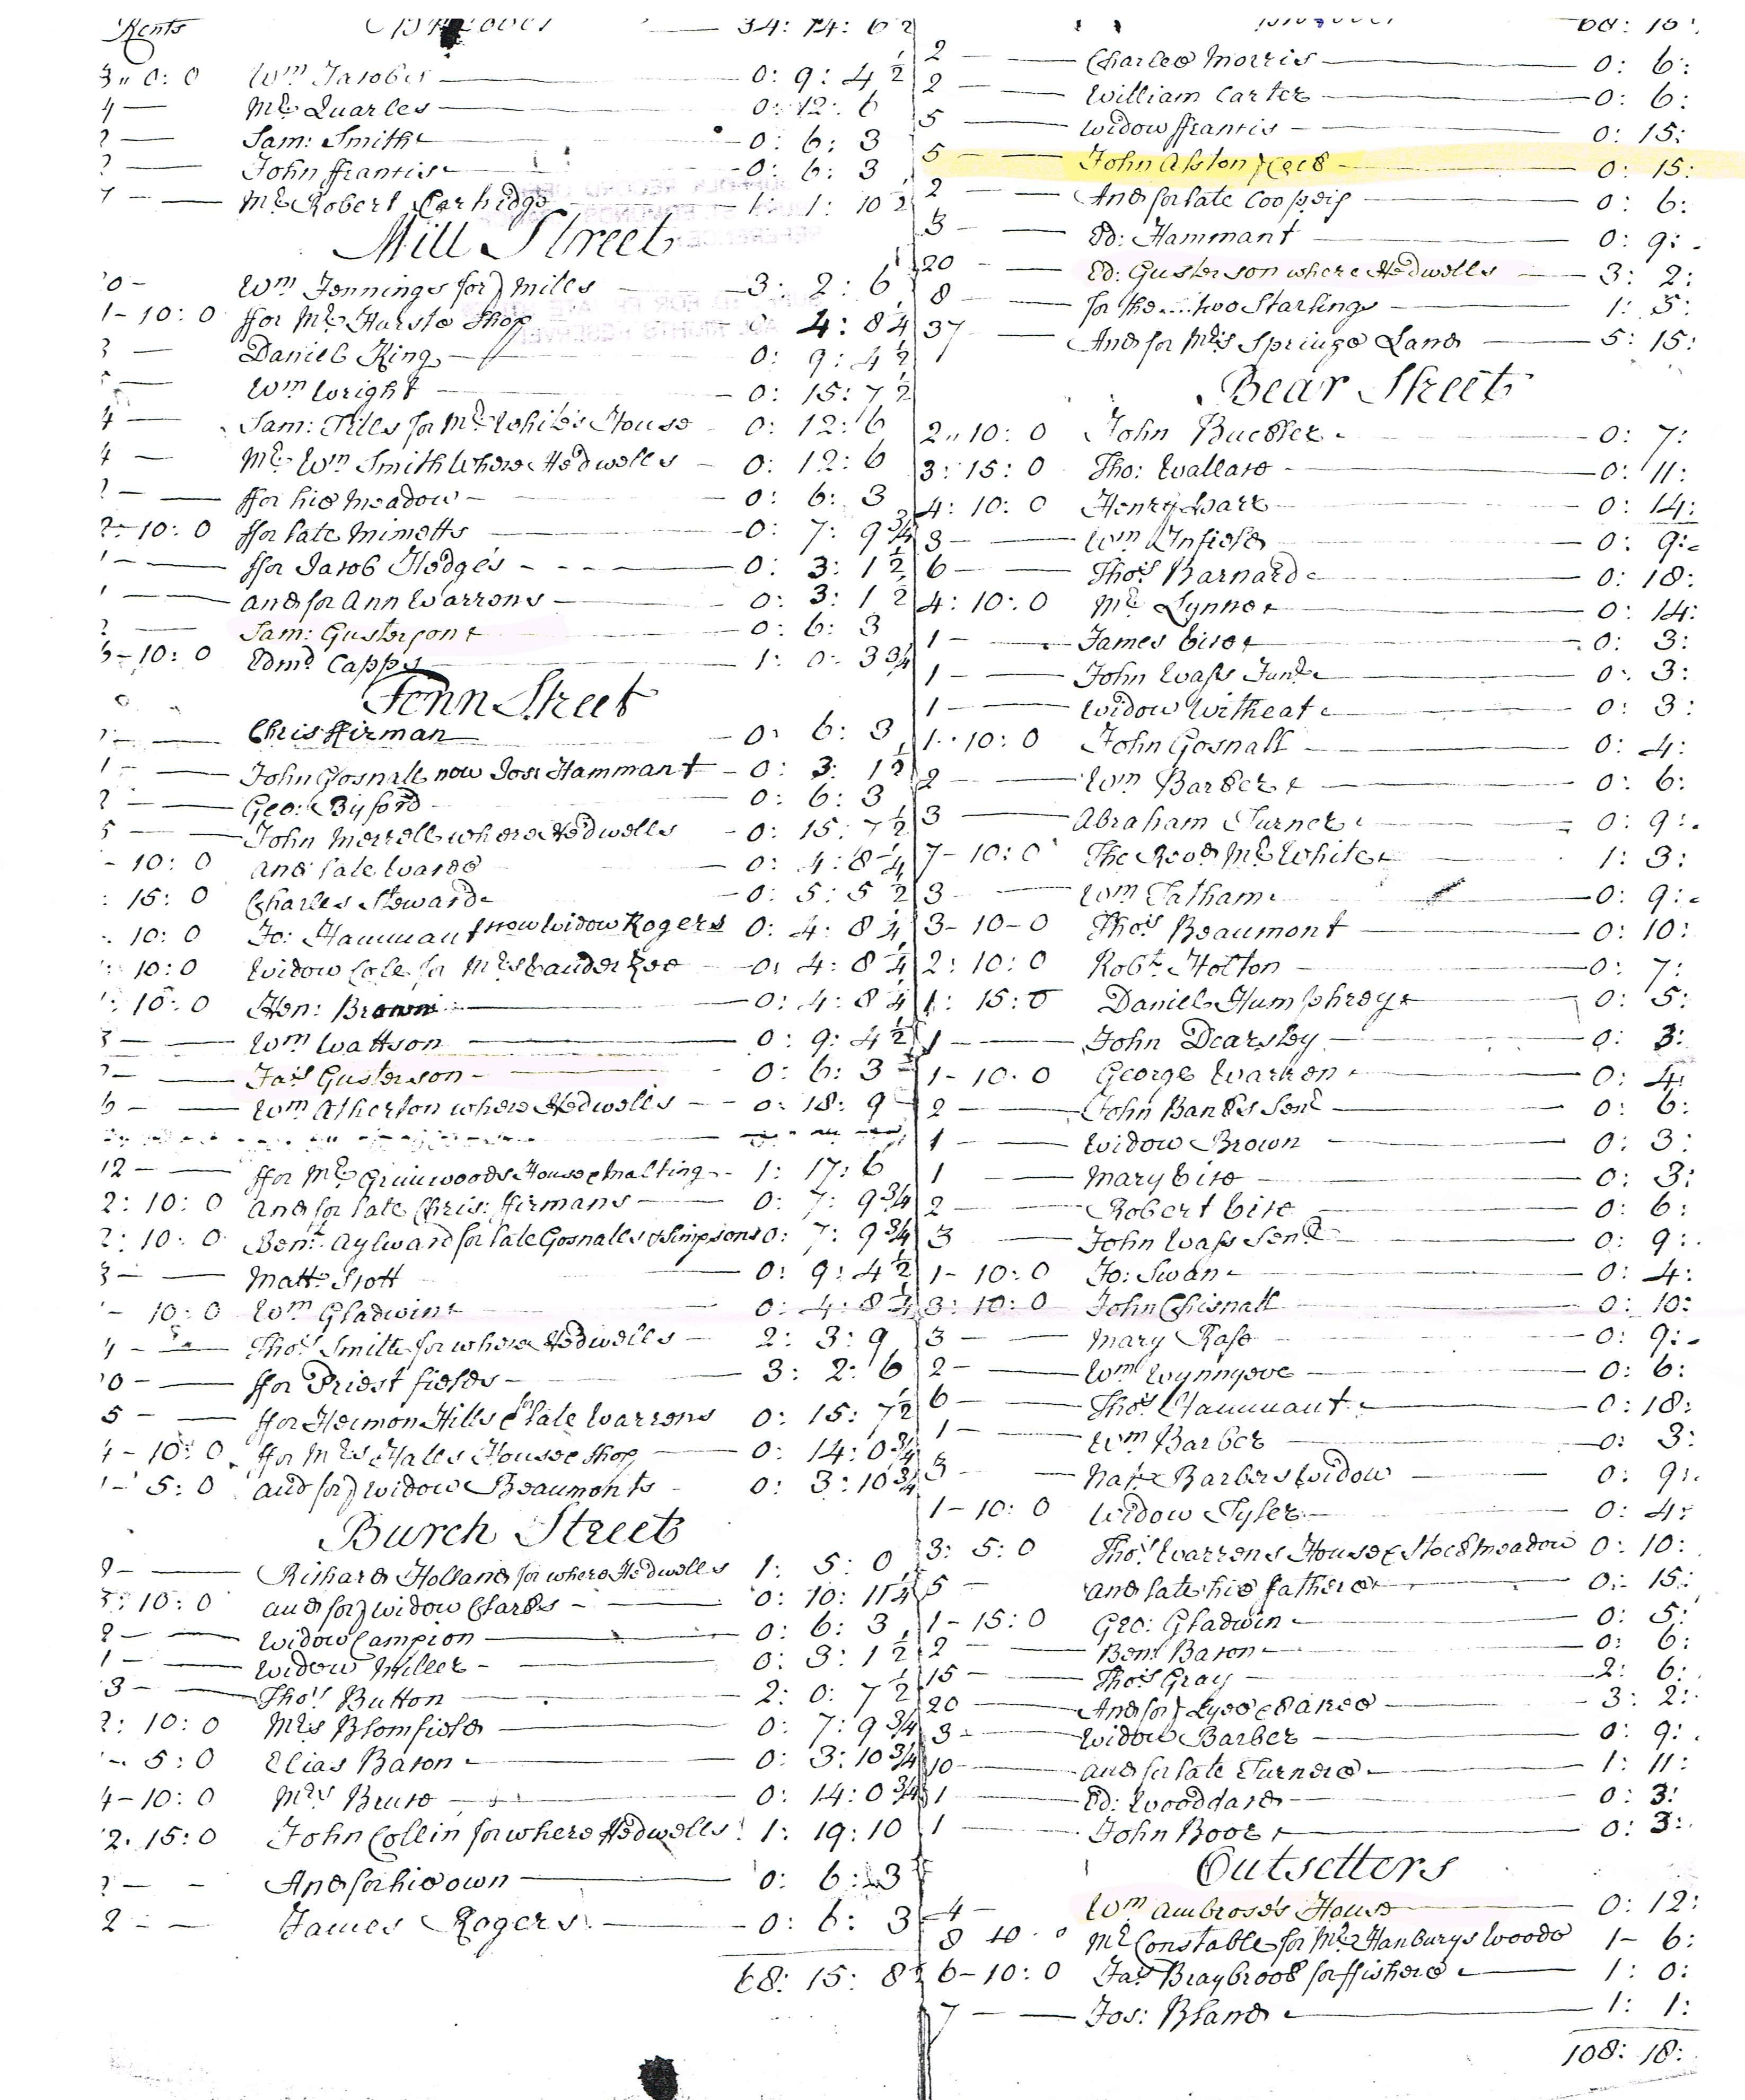 Rents
34: 14: 6 ½
3,, 0: 0 Wm Jacobs 0: 9: 4 ½
4 — Mr Quarles 0: 12: 6
Sam: Smith 0: 6: 3
John ffrancis 0: 6: 3
7 — Mr Robert 1: 1: 10 ½
Mill Street
0 — Wm Jennings for Miles 3: 2: 6
1-10: 0 ffor Mr Hursts Shop 0 4: 8 ¼
3 — Daniel King 0: 9: 4 ½
5 — Wm Wright 0: 15: 7 ½
4 — Sam: for Mr Whites House 0: 12: 6
4 — Mr Wm Smith Where He dwells 0: 12: 6
ffor his meadow 0: 6: 3
2-10: 0 ffor late Mimotts 0: 7: 9 ¾
1 — ffor Jacob Hodges 0: 3: 1 ½
1 — and for Ann Warrens 0: 3: 1 ½
Sam: Gusterson 0: 6: 3
-10: 0 Edmd Capps 1: 0: 3 ¾
Fenn Street
Chris ffirman 0: 6: 3
1 — John Gosnall now Jos: Hammant 0: 3: 1 ½
Geo: Byford 0: 6: 3
5 — John Merrells where He dwells 0: 15: 7 ½
-10: 0 and late Wards 0: 4: 8 ¼
: 15: 0 Charles Steward 0: 5: 5 ½
: 10: 0 Jo: Hammant now Widow Rogers 0: 4: 8 ¼
: 10: 0 Widow Cole for Mrs 0: 4: 8 ¼
: 10: 0 Hen: Brown 0: 4: 8 ¼
3 — Wm Wattson 0: 9: 4 ½
Jas Gusterson 0: 6: 3
6 — Wm Atherton where He dwells 0: 18: 9
12 — ffor Mr Grimwoods House & Malting 1: 17: 6
2: 10: 0 and for late Chris: ffirmans 0: 7: 9 ¾
2: 10: 0 Benj: Aylward for late Gosnalls & Simpsons 0: 7: 9 ¾
3 — Matt: Scott 0: 9: 4 ½
-10: 0 Wm Gladwin 0: 4: 8 ¼
4 — Thos Smith for where He dwells 2: 3: 9
0 — ffor Priest fields 3: 2: 6
5 — ffor Hermon Hills & late Warrens 0: 15: 7 ½
4-10: 0 ffor Mrs Halls House & Shop 0: 14: 0 ¾
1-5: 0 and for Widow Beaumonts 0: 3: 10 ¾
Burch Street
Richard Holland for where He dwells 1: 5: 0
3: 10: 0 and for Widow Clarks 0: 10: 11 ¼
2 — Widow Campion 0: 6: 3
1 — Widow Miller 0: 3: 1 ½
3 — Thos Button 2: 0: 7 ½
2: 10: 0 Mrs Blomfield 0: 7: 9 ¾
1-5: 0 Elias Bacon 0: 3: 10 ¾
4-10: 0 Mrs Bruce 0: 14: 0 ¾
2: 15: 0 John Collin for where He dwells 1: 19: 10
2 — And for his own 0: 6: 3
2 — James Rogers 0: 6: 3
68: 15: 8
68: 15:
2 — Charles Morris 0: 6:
2 — William Carter 0: 6:
5 — Widow ffrancis 0: 15:
5 — John Alston 0: 15:
2 — And for late Coopers 0: 6:
3 — Ed: Hammant 0: 9:
20 — Ed: Gusterson where He dwells 3: 2:
8 — for the two Starlings 1: 5:
37 — And for Mrs Springs Land 5: 15:
Bear Street
2,, 10: 0 John Buckler 0: 7:
3: 15: 0 Tho: Wallace 0: 11:
4: 10: 0 Henry Ware 0: 14:
3 — Wm Enfield 0: 9:
6 — Thos Barnard 0: 18:
4: 10: 0 Mr Lynne 0: 14:
1 — James 0: 3:
1 — John Wass Junr 0: 3:
1 — Widow Witheat 0: 3:
1: 10: 0 John Gosnall 0: 4:
2 — Wm Barker 0: 6:
3 — Abraham Turner 0: 9:
7-10: 0 The Revd Mr White 1: 3:
3 — Wm Tatham 0: 9:
3-10-0 Thos Beaumont 0: 10:
2: 10: 0 Robt Holton 0: 7:
1: 15: 0 Daniel Humphrey 0: 5:
1 — John Dearsley 0: 3:
1-10: 0 George Warren 0: 4:
2 — John Banks Senr 0: 6:
1 — Widow Brown 0: 3:
1 — Mary 0: 3:
2 — Robert 0: 6:
3 — John Wass Senr 0: 9:
1-10: 0 Jo: Swan 0: 4:
3: 10: 0 John Chisnall 0: 10:
3 — Mary Rose 0: 9:
2 — Wm Wynnyeve 0: 6:
6 — Thos Hammant 0: 18:
1 — Wm Barber 0: 3:
3 — Nat: Barbers Widow 0: 9:
1-10: 0 Widow Tyler 0: 4:
3: 5: 0 Thos Warrens House & Stock meadow 0: 10:
5 — and late his fathers 0: 15:
1-15: 0 Geo: Gladwin 0: 5:
2 — Benj Bacon 0: 6:
15 — Thos Gray 2: 6:
20 — And for 3: 2:
3 — Widow Barber 0: 9:
10 — and for late Turners 1: 11:
1 — Ed: Wooddard 0: 3:
1 — John Boor 0: 3:
Outsetters
4 — Wm Ambrose's House 0: 12:
8 10: 0 Mr Constable for Mr Hanburys Woods 1- 6:
6-10: 0 Jas Braybrook for ffishers 1: 0:
7 — Jos: Bland 1: 1:
108: 18: